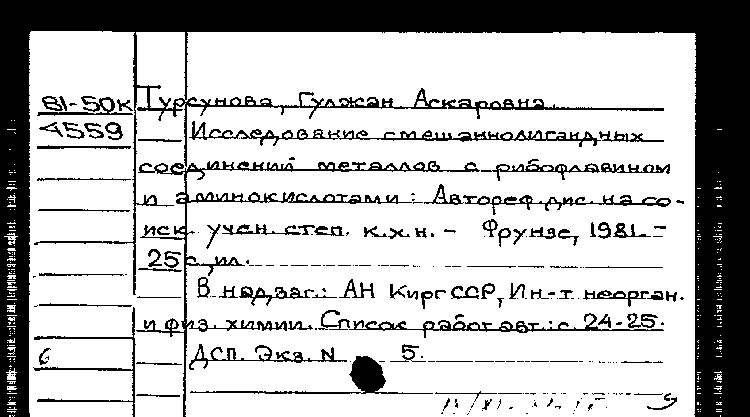 81-50к Турсунова, Гулжан Аскаровна.
4559 Исследование смешаннолигандных
соединений металлов с рибофлавином
и аминокислотами : Автореф. дис. на со-
иск. учен. степ. к.х.н. - Фрунзе, 1981. -
25 с. ил.
В надзаг.: АН КиргССР, Ин-т неорган.
и физ. химии. Список работ авт.: с. 24-25.
6 ДСП. Экз. N 5.